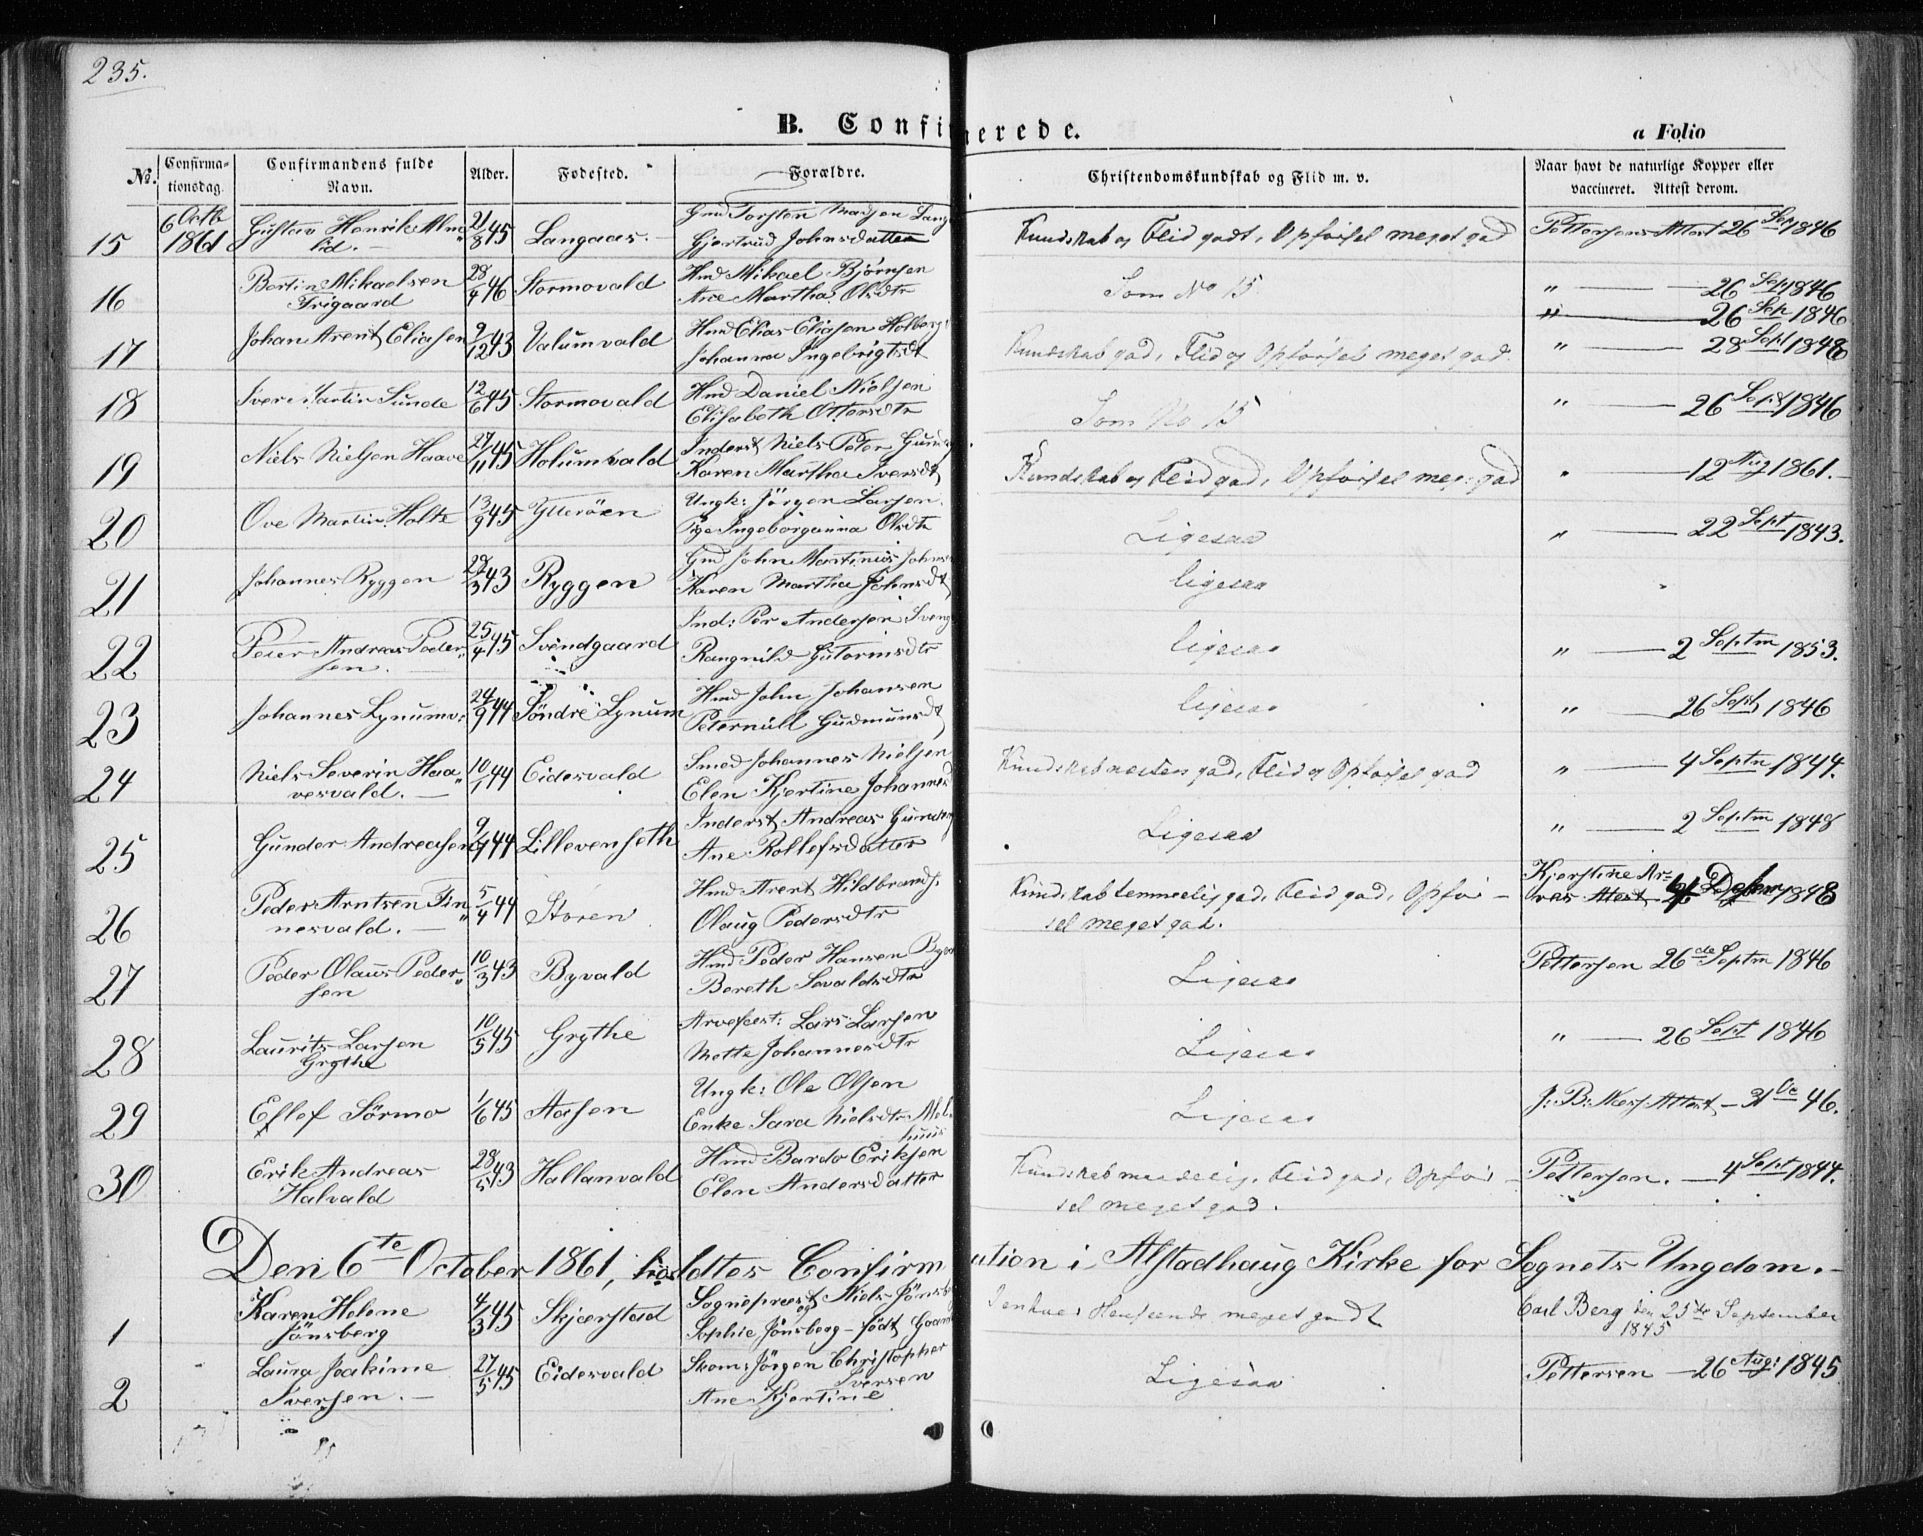 235.
B. Confirmerede.
a Folio
No.
Confirma-
tionsdag.
Confirmandens fulde
Navn.
Alder.
Fødested.
Forældre.
Christendomskundskab og Flid m. v.
Naar havt de naturlige Kopper eller
vaccineret. Attest derom.
15 6 Octb 1861 Gustav Henrik Alm= 21/8 45 Langaas. Gmd Torsten Madsen
lid. Gjertrud Johnsdatter
Kundskab og Flid godt, Opførsel meget god Pettersens Attest 26 Sep 1846
16 Bertin Mikaelsen 28/4 46 Stormovald Hmd Mikael Bjørnsen
Trigaard Ane Martha Olsdtr
Som No 15 " 26 Sep 1846
" 26 Sep 1846
17 Johan Arent Eliasen 2/12 43 Valumvald Hmd Elias Eliasen Holberg
Johanna Ingebrigtsdt
Kundskab god, Flid og Opførsel meget god. " 28 Sept 1848
18 Iver Martin Sunde 12/6 45 Stormovald Hmd Daniel Nielsen
Elisabeth Ottersdtr
Som No 15 " 26 Sept 1846
19 Niels Nielsen Haave 27/11 45 Holumvald Inderst Niels Peter
Karen Martha Iversdt
Kundskab og Flid god, Opførsel meget god " 12 Aug 1861.
20 Ove Martin Holte 13/9 45 Ytterøen Ungk: Jörgen Larsen
Pige Ingeborganna Olsdtr
Ligesaa " 22 Sept 1843.
21 Johannes Ryggen 29/3 43 Ryggen Gmd John Martinus Johns
Karen Martha Johnsdt
ligesaa
22 Peter Andreas Peder= 25/4 45 Svendgaard Ind: Per Andersen
sen. Rangnild Gutormsdtr
ligesaa " 2 Septm 1853.
23 Johannes Lynumv: 24/9 44 Söndre Lynum Hmd John Johansen
Peternill Gudmunsdt
ligesaa " 26 Sept 1846
24 Niels Severin Haa= 10/1 44 Eidesvald Smed Johannes Nielsen
vesvald. Elen Kjertine Johannesd
Kundskab næsten god, Flid og Opførsel god " 4 Septm 1844.
25 Gunder Andreasen 44 Lillevenseth Inderst Andreas
Ane Rollefsdatter
Ligesaa " 2 Septm 1848
26 Peder Arntsen Fin= 5/4 44 Storen Hmd Arent Hildbrands.
nesvald. Olaug Pedersdtr
Kundskab temmelig god, Flid god, Opfør- Kjerstine
sel meget god. Attest 4 1848
27 Peder Olaus Peder= 10/3 43 Byvald Hmd Peder Hansen
sen Bereth Sevaldsdtr
Ligesaa Pettersen 26de Septm 1846
28 Laurits Larsen 10/5 45 Grythe Arvefæst: Lars Larsen
Grythe Mette Johannesdtr
Ligesaa " 26 Sept 1846
29 Ellef Sörmo 1/6 45 Aasen Ungk: Ole Olsen
Enke Sara Nielsdtr
Ligesaa J: B: Attest - 46.
30 Erik Andreas 28/5 43 Hallanvald Hmd Bardo Eriksen
Halvald Elen Andersdatter
Kundskab maadelig, Flid god, Opfør- Pettersen. 4 Sept 1844.
sel meget god.
Den 6te October 1861, holdtes Confirmation i Alstadhaug Kirke for Sognets Ungdom.
1 Karen Helene 4/3 45 Skjerstad Sognepræst Niels Jönsberg
Jönsberg og Sophie Jönsberg - födt
meget godt Carl Berg den 25de September
1845
2 Laura Joakime 27/5 45 Eidesvald Skom: Jörgen Christopher
Iversen. Iversen
Ane Kjertine
Ligesaa Pettersen 26 Aug: 1845